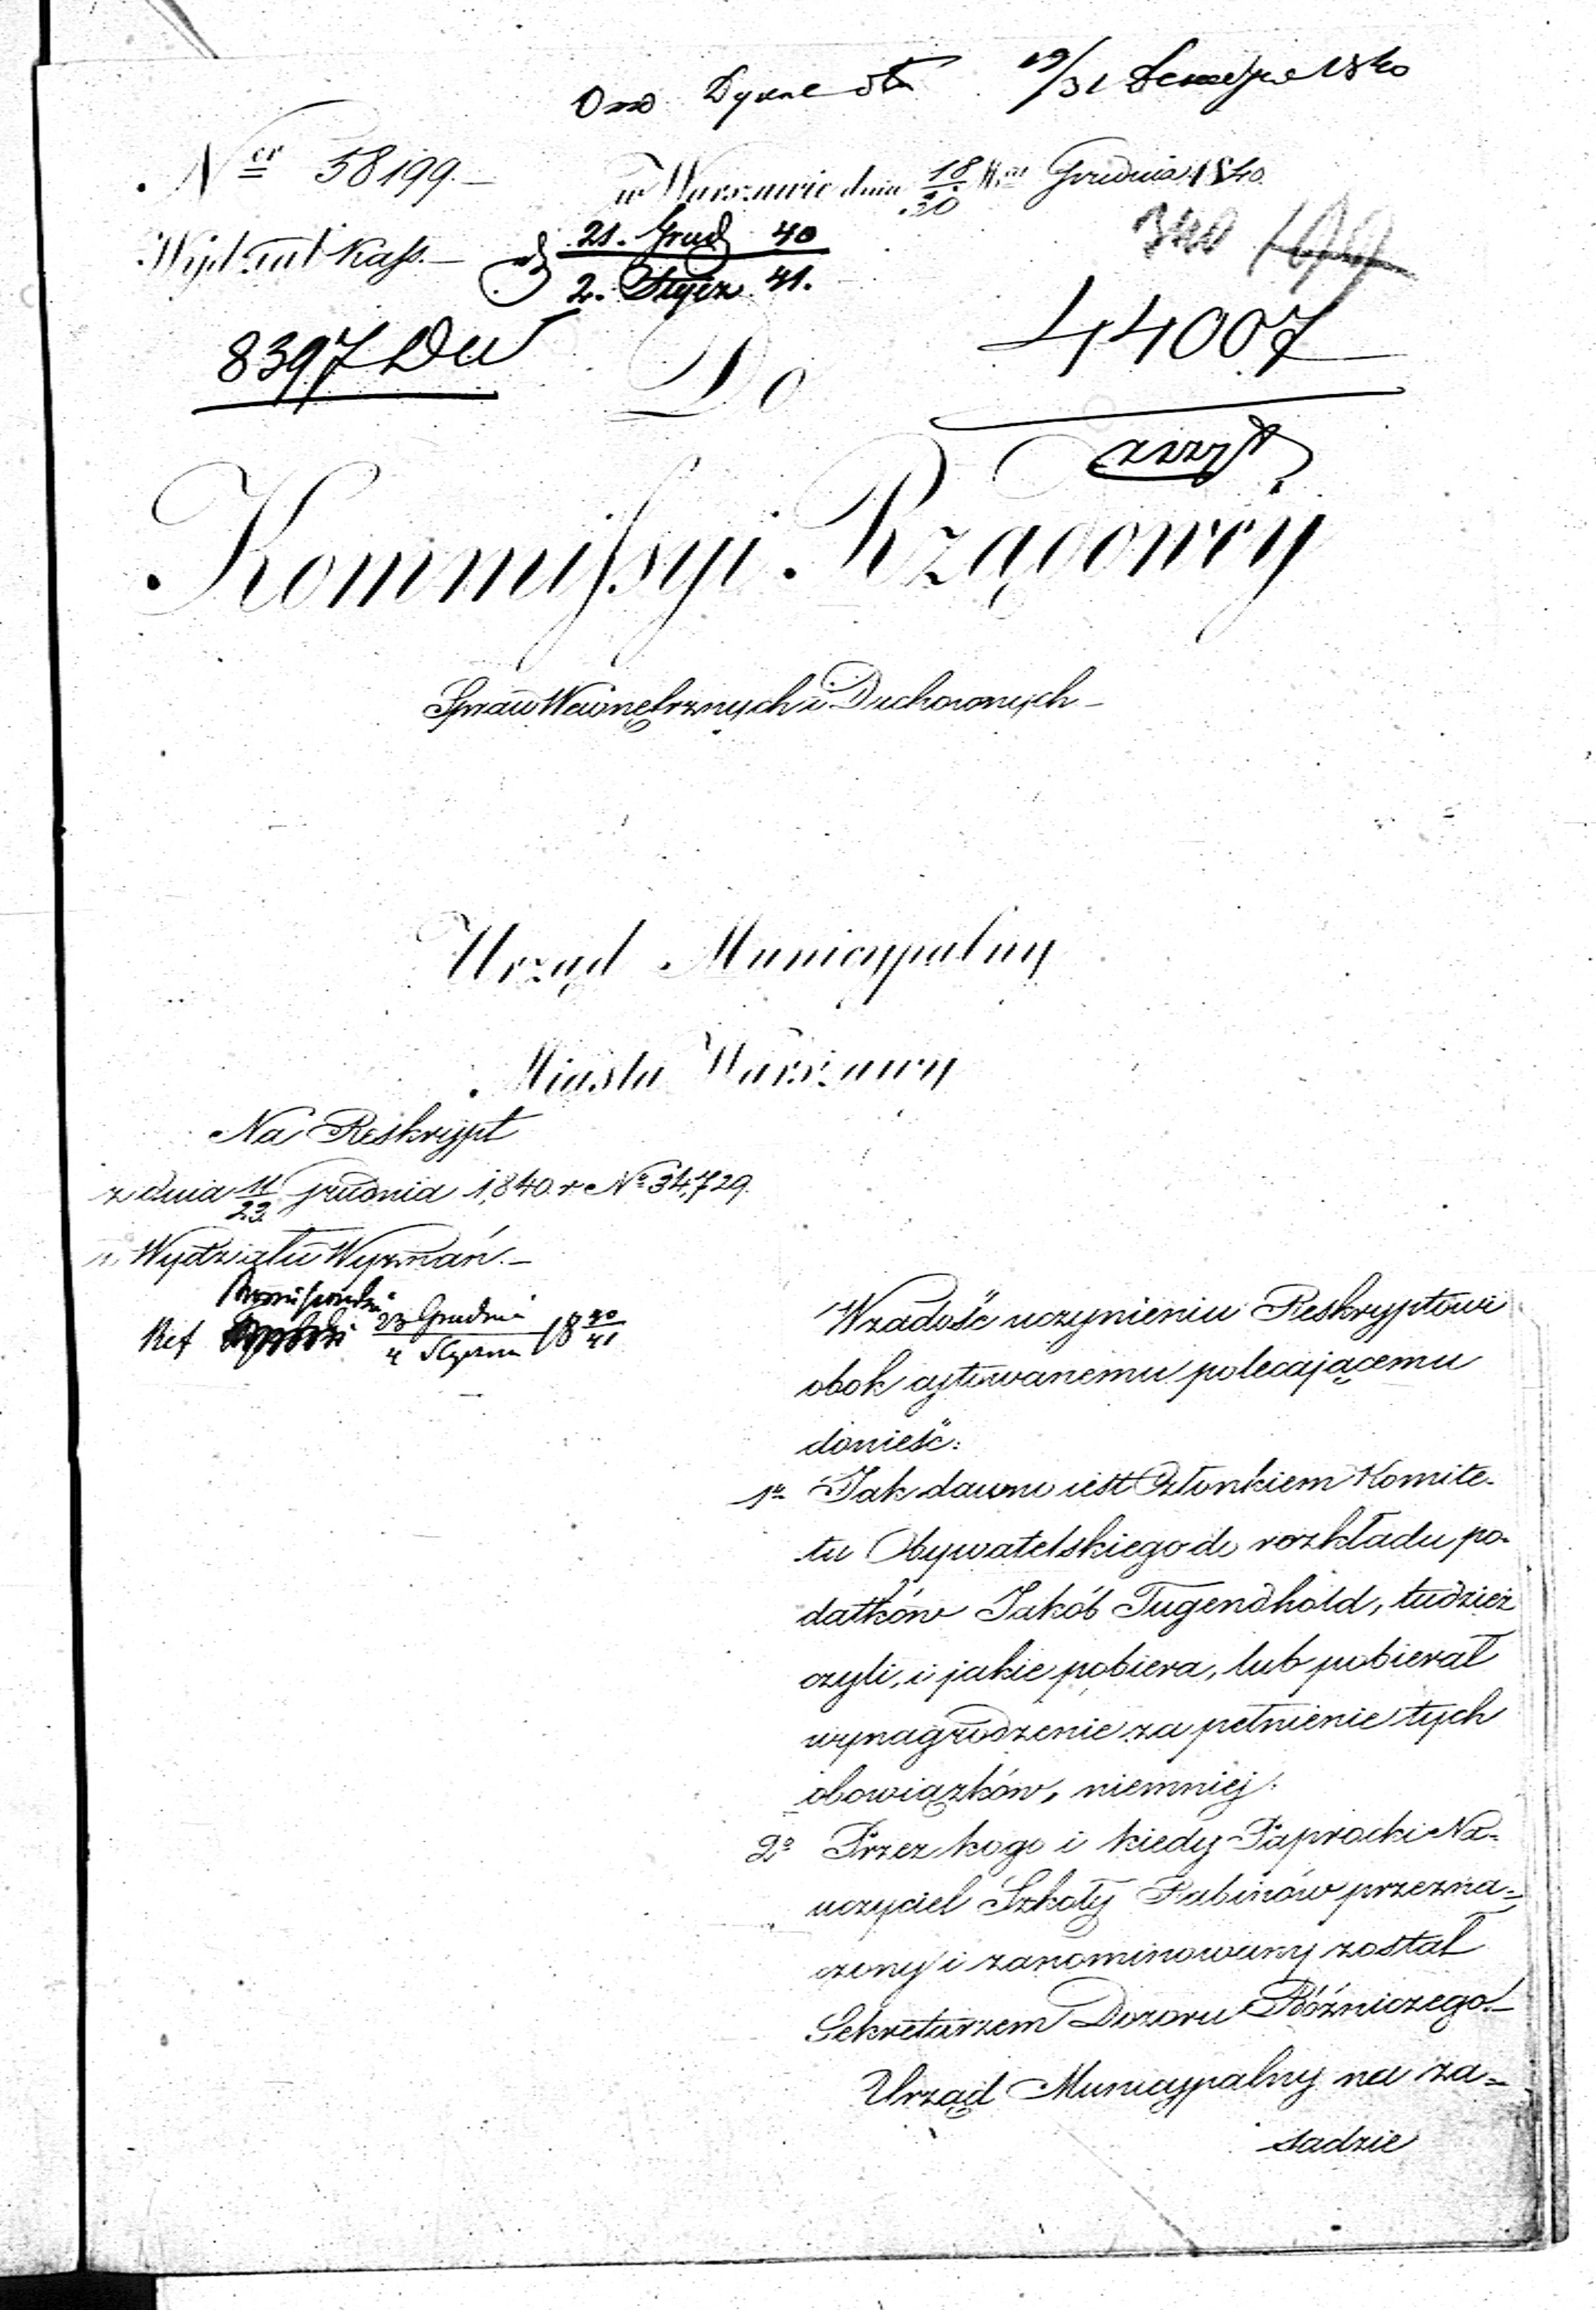 19/31 1840
Ner 58199.
w Warszawie dnia 18/30 Mca Grudnia 1840.
Wydział Kass.
21. Grud 40
2. Stycz. 41.
8397
44007
Do
Kommissyi Rządowéy
Spraw Wewnętrznych i Duchownych
Urząd Municypalny
Miasta Warszawy
Na Reskrypt
z dnia 11/23 Grudnia 1840. r. No 34,729.
Wydziału Wyznań.
Ref 23 Grudnia
4 Stycznia 18 40/41
Wzadość uczynieniu Reskryptowi
obok cytowanemu polecającemu
donieść:
1o Jak dawno iest Członkiem Komite-
tu Obywatelskiego do rozkładu po-
datków Jakób Tugendhold, tudzież
czyli, i jakie pobiera, lub pobierał
wynagrodzenie za pełnienie tych
obowiązków, niemniej:
2o Przez kogo i kiedy Paprocki Na-
uczyciel Szkoły Rabinów przezna-
czony i zanominowany został
Sekretarzem Dozoru Bóżniczego.
Urząd Municypalny na za-
sadzie